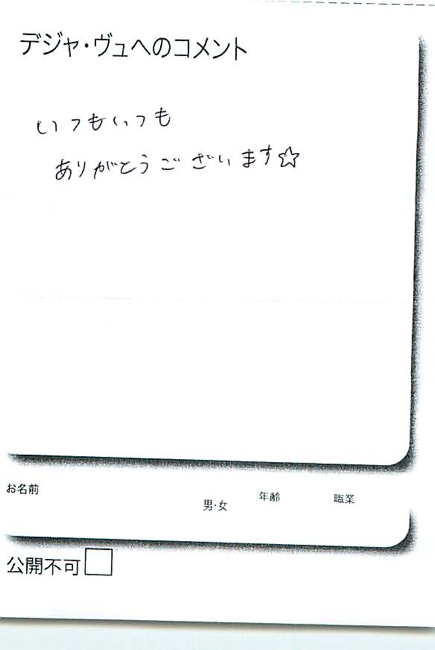 デジャ・ヴュへのコメント
いつもいつも
ありがとうございます☆
お名前
男・女
年齢
職業
公開不可